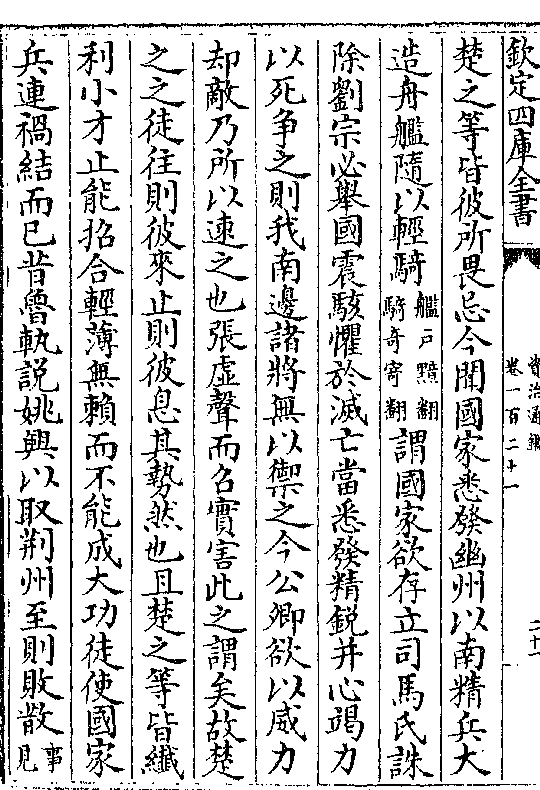 欽定四庫全書
資治通鑑
卷一百二十一
二十一
楚之等皆彼所畏忌今聞國家悉發幽州以南精兵大
造舟艦隨以輕騎艦戶黯翻騎奇寄翻謂國家欲存立司馬氏誅
除劉宗必舉國震駭懼於滅亡當悉發精銳并心竭力
以死争之則我南邊諸將無以禦之今公卿欲以威力
却敵乃所以速之也張虛聲而召實害此之謂矣故楚
之之徒往則彼來止則彼息其勢然也且楚之等皆纎
利小才止能招合輕薄無賴而不能成大功徒使國家
兵連禍結而已昔魯軌說姚興以取荆州至則敗散事見